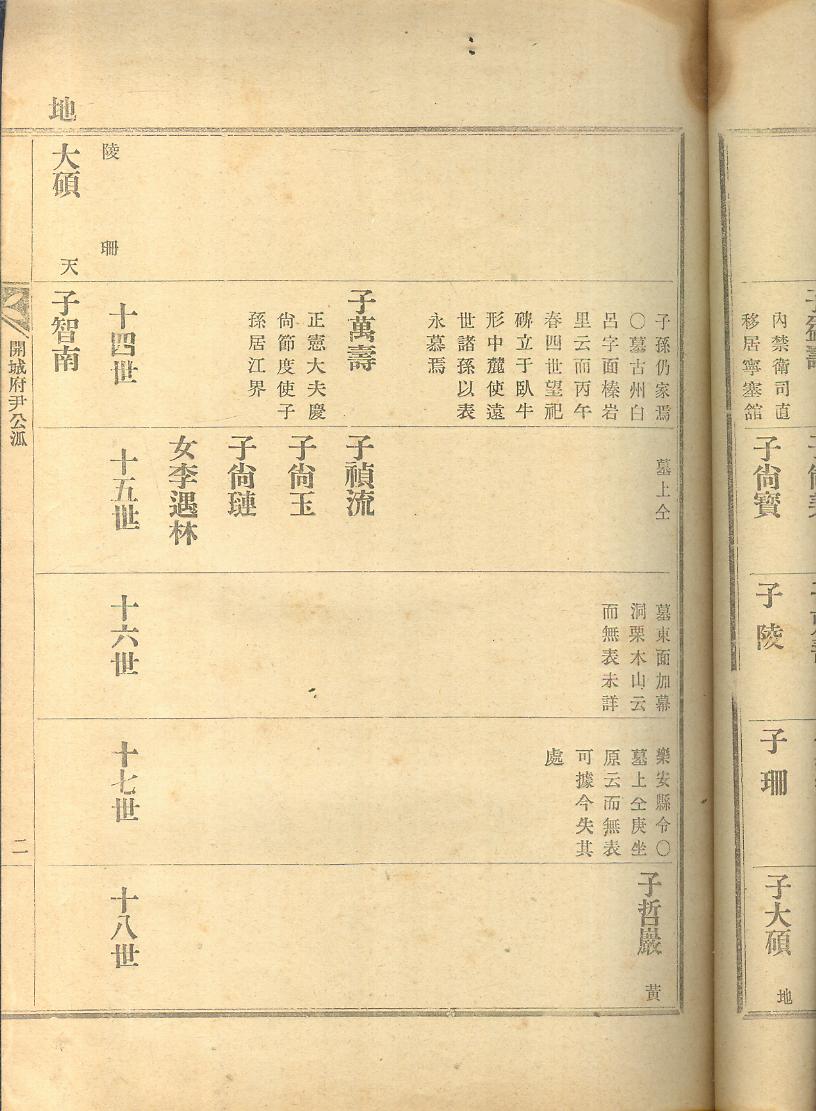 內禁衛司直
移居寧塞舘
子尙寳
子陵
子珊
子大碩
地
子孫仍家焉
〇墓古州白
呂字面榛岩
里云而丙午
春四世望祀
碑立于臥牛
形中麓使遠
世諸孫以表
永慕焉
子萬壽
正憲大夫慶
尙節度使子
孫居江界
十四世
墓上仝
子禎流
子尙玉
子尙璉
女李遇林
十五世
墓東面加幕
洞栗木山云
而無表未詳
十六世
樂安縣令〇
墓上仝庚坐
原云而無表
可據今失其
處
十七世
子哲巖
黃
十八世
陵
珊
地
大碩
天
子智南
開城府尹公派
二